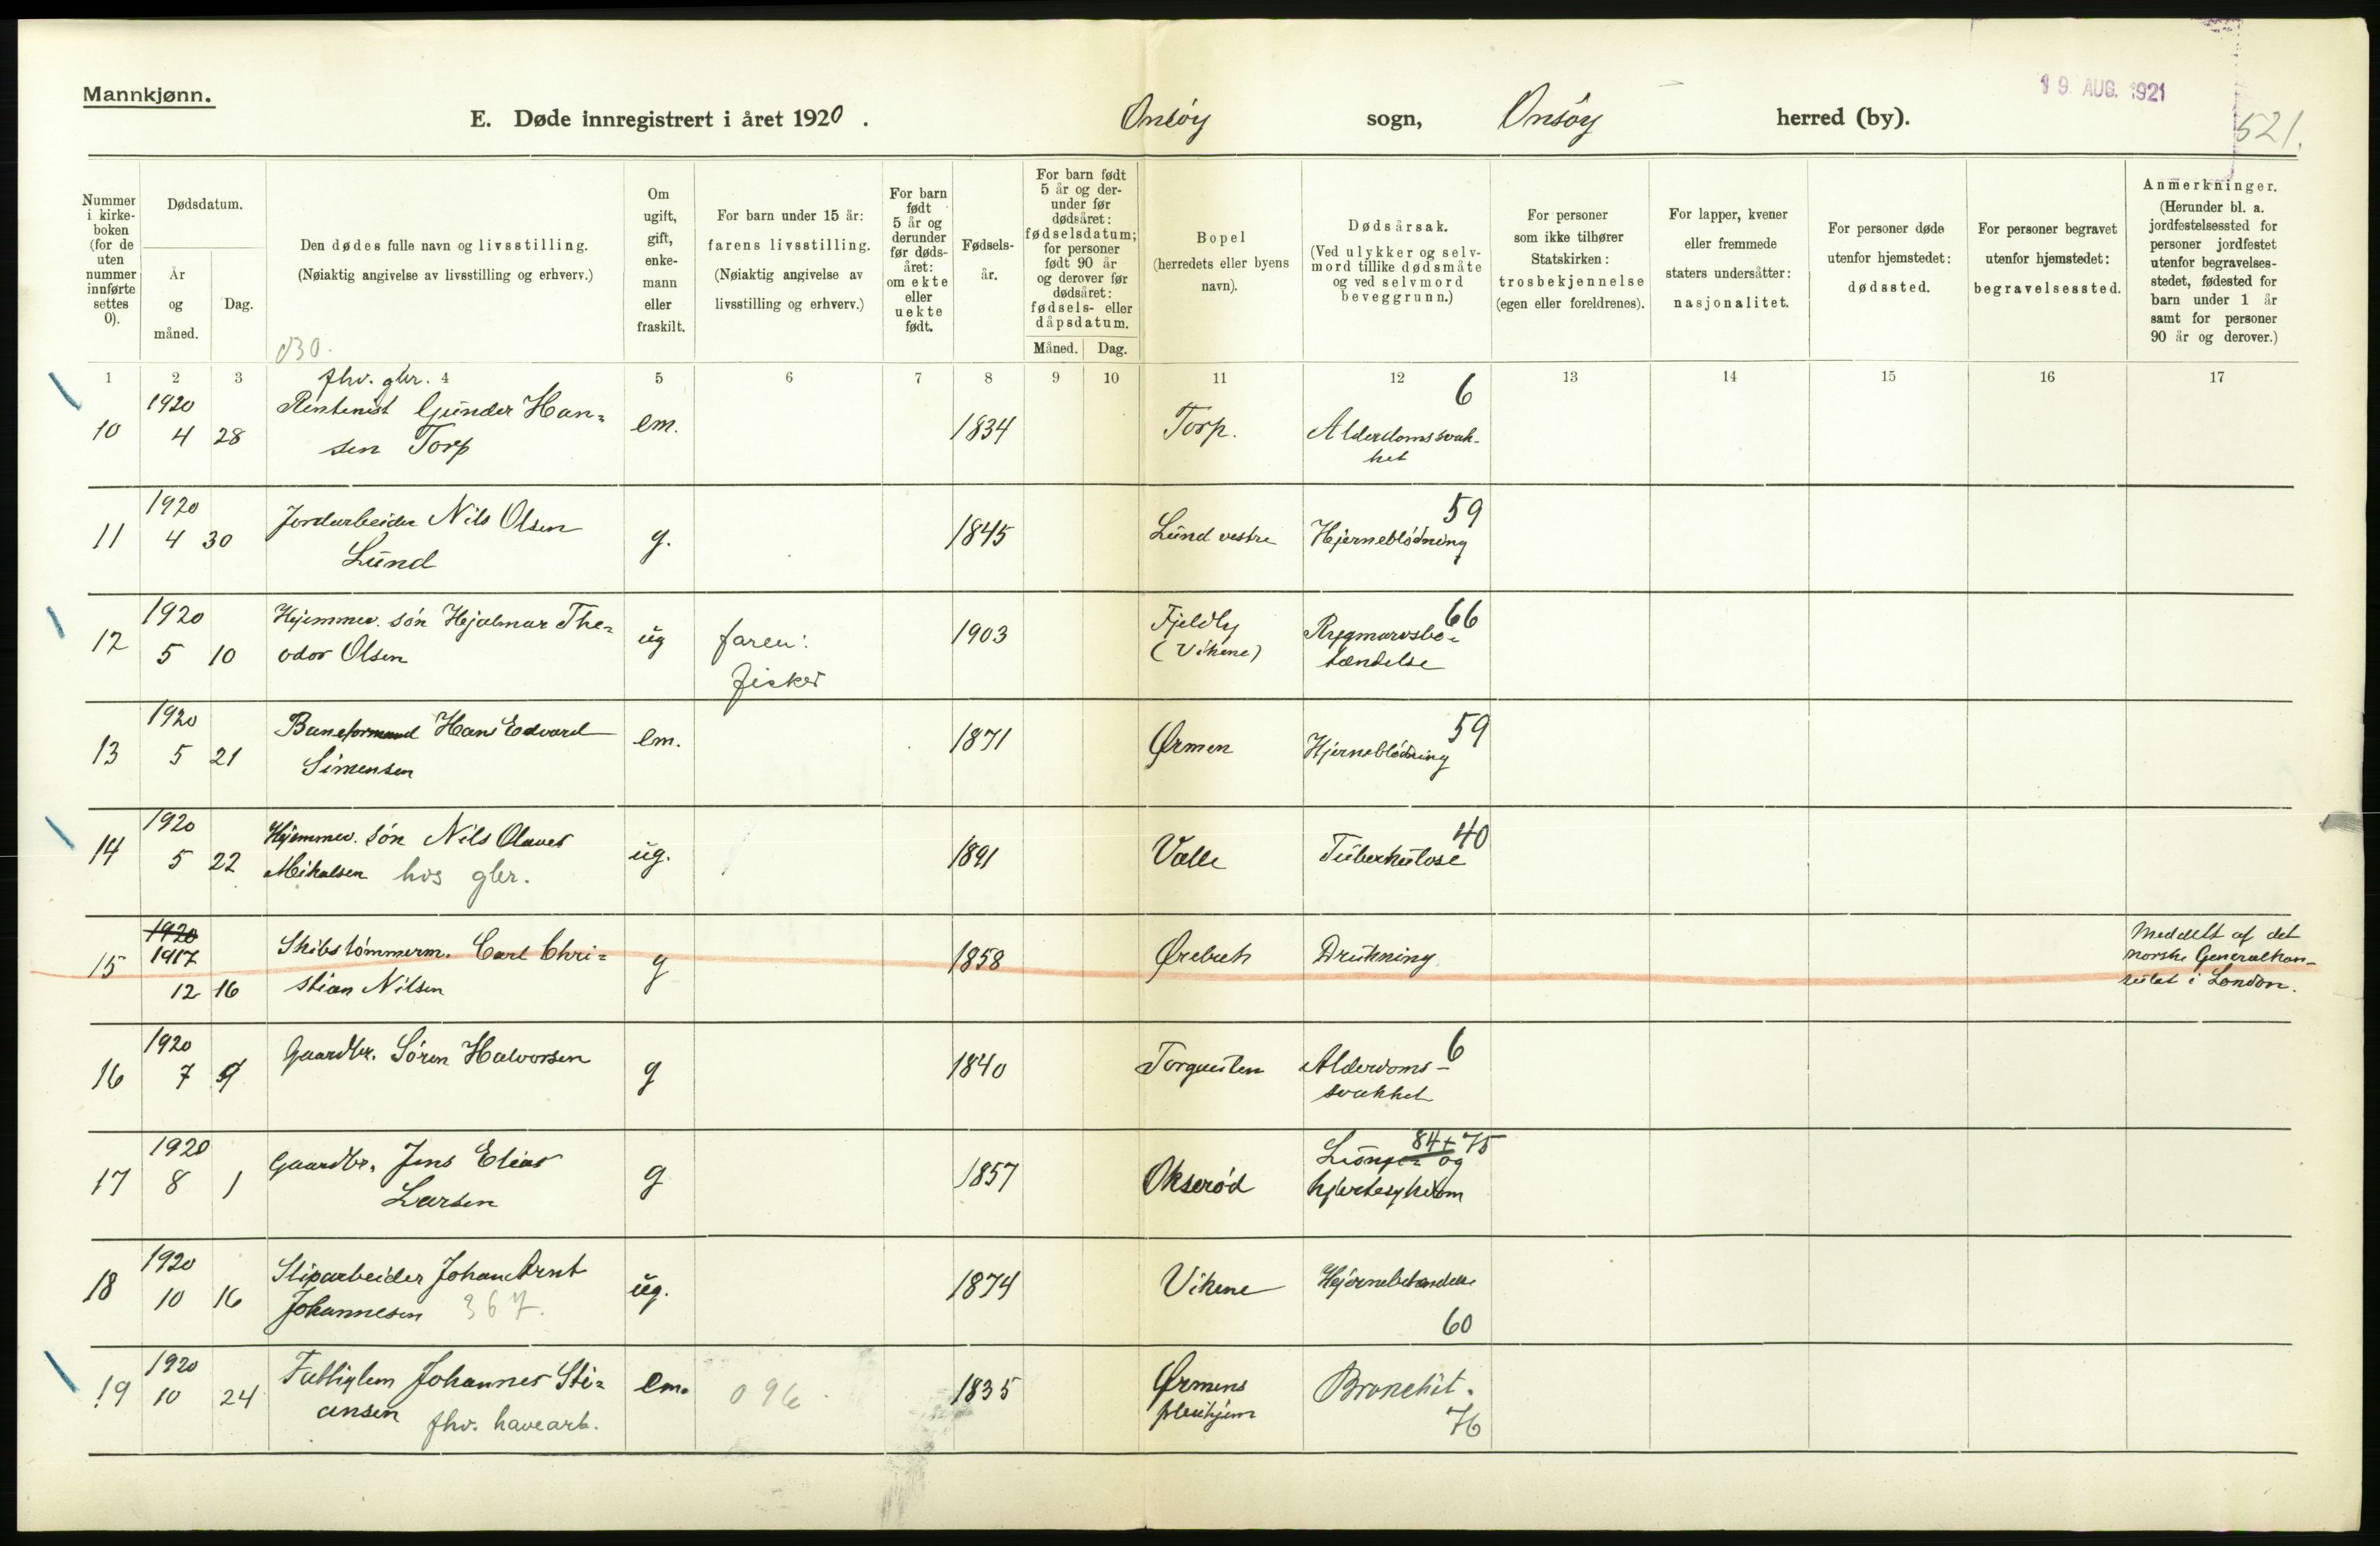 Mannkjønn.
E. Døde innregistrert i året 1920.
Onsöy sogn, Onsöy herred (by).
19. AUG. 1921
521.
Nummer i kirkeboken (for de uten nummer innførte settes 0).
Dødsdatum.
År og måned.
Dag.
Den dødes fulle navn og livsstilling.
(Nøiaktig angivelse av livsstilling og erhverv.)
Om ugift, gift, enkemann eller fraskilt.
For barn under 15 år:
farens livsstilling.
(Nøiaktig angivelse av livsstilling og erhverv.)
For barn født 5 år og derunder før dødsåret: om ekte eller uekte født.
Fødselsår.
For barn født 5 år og derunder før dødsåret: fødselsdatum; for personer født 90 år og derover før dødsåret: fødsels- eller dåpsdatum.
Måned. Dag.
Bopel
(herredets eller byens navn).
Dødsårsak.
(Ved ulykker og selvmord tillike dødsmåte og ved selvmord beveggrunn.)
For personer som ikke tilhører Statskirken:
trosbekjennelse
(egen eller foreldrenes).
For lapper, kvener eller fremmede staters undersåtter:
nasjonalitet.
For personer døde utenfor hjemstedet:
dødssted.
For personer begravet utenfor hjemstedet:
begravelsessted.
Anmerkninger.
(Herunder bl. a. jordfestelsessted for personer jordfestet utenfor begravelsesstedet, fødested for barn under 1 år samt for personer 90 år og derover.)
030.
1 2 3 4 5 6 7 8 9 10 11 12 13 14 15 16 17
fhv. gbr.
10 1920 4 28 Rentenist Gunder Han=
sen Torp em. 1834 Torp. 6 Alderdomssvak-
het
11 1920 4 30 Jordarbeider Nils Olsen
Lund g. 1845 Lund vestre 59 Hjerneblödning
12 1920 5 10 Hjemmev. sön Hjalmar The=
odor Olsen ug faren:
fisker 1903 Fjeldly
(Vikene) 66 Rygmarvsbe=
tændelse
13 1920 5 21 Baneformand Hans Edvard
Simensen em. 1871 Ørmen 59 Hjerneblödning
14 1920 5 22 Hjemmev. sön Nils Olaves
Mikalsen hos gbr. ug. 1891 Valle 40 Tuberkulose
15 1920 1917 12 16 Skibstömmerm. Carl Chri=
stian Nilsen g 1858 Ørebæk Drukning Meddelt af det
norske Generalkon-
sulat i London.
16 1920 7 9 Gaardbr. Sören Halvorsen g 1840 Torgauten 6 Alderdoms-
svakhet
17 1920 8 1 Gaardbr. Jens Elias
Larsen g 1857 Okseröd 84+75 og
hjertesykdom
18 1920 10 16 Sliparbeider Johan Arnt
Johannesen 367. ug. 1874 Vikene Hjernebetændelse
60
19 1920 10 24 Fattiglem Johannes Sti=
ansen fhv. havearb. em. 096 1835 Ørmens
pleiehjem Bronchit.
76